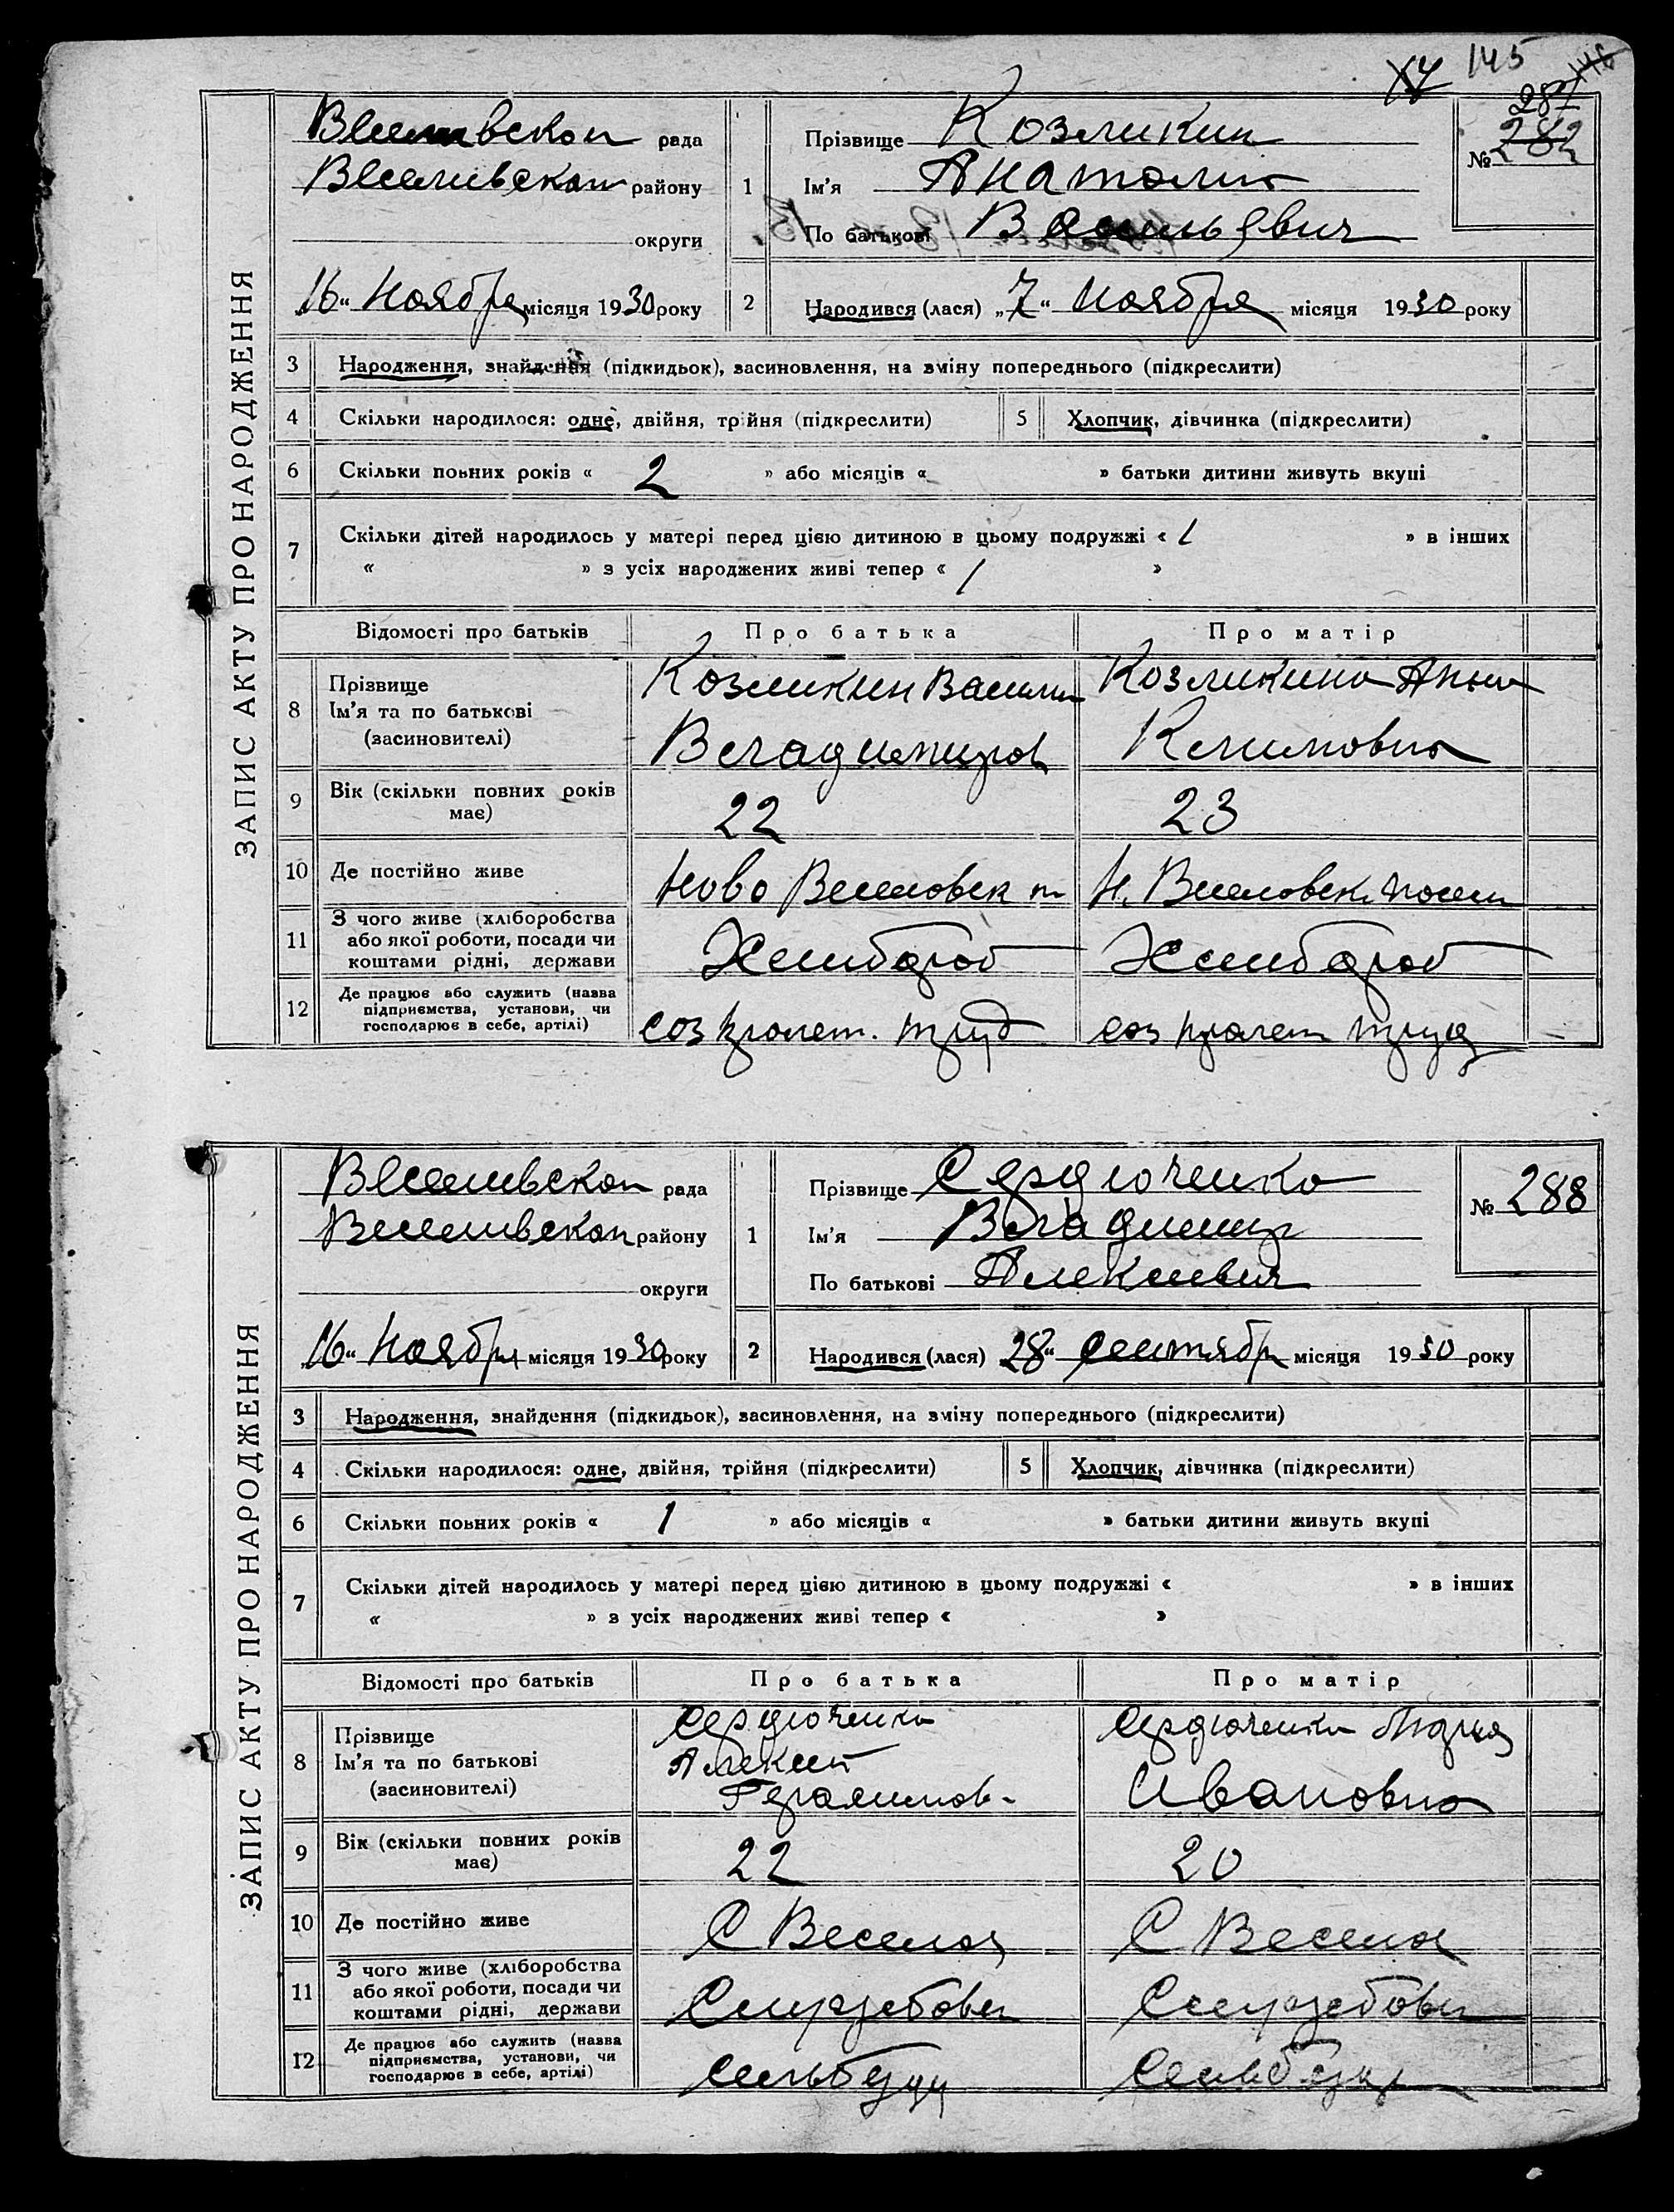 145
287
№ 282
ЗАПИС АКТУ ПРО НАРОДЖЕННЯ
рада
району
округи
1
Прізвище Козликин
Ім'я Анатолий
По батькові Васильевич
16" Ноября місяця 1930 року
2
Народився (лася) „7" Ноября місяця 1930 року
3 Народження, знайдення (підкидьок), засиновлення, на зміну попереднього (підкреслити)
4 Скільки народилося: одне, двійня, трійня (підкреслити) 5 Хлопчик, дівчинка (підкреслити)
6 Скільки повних років « 2 » або місяців « » батьки дитини живуть вкупі
7 Скільки дітей народилось у матері перед цією дитиною в цьому подружжі « 1 » в інших
« » з усіх народжених живі тепер « 1 »
Відомості про батьків Про батька Про матір
8 Прізвище Ім'я та по батькові (засиновителі)
Козликин Василий Владимиров
Козликина Анна Климовна
9 Вік (скільки повних років має) 22 23
10 Де постійно живе Ново Веселовск п Н. Веселовск. посел
11 З чого живе (хліборобства або якої роботи, посади чи коштами рідні, держави Хлибороб Хлибороб
12 Де працює або служить (назва підприємства, установи, чи господарює в себе, артілі) соз пролет. труд соз пролет труд
ЗАПИС АКТУ ПРО НАРОДЖЕННЯ
рада
району
округи
№ 288
1
Прізвище Сердюченко
Ім'я Владимир
По батькові Алексеевич
16" Ноября місяця 1930 року
2
Народився (лася) 28" Сентября місяця 1930 року
3 Народження, знайдення (підкидьок), засиновлення, на зміну попереднього (підкреслити)
4 Скільки народилося: одне, двійня, трійня (підкреслити) 5 Хлопчик, дівчинка (підкреслити)
6 Скільки повних років « 1 » або місяців « » батьки дитини живуть вкупі
7 Скільки дітей народилось у матері перед цією дитиною в цьому подружжі « » в інших
« » з усіх народжених живі тепер « »
Відомості про батьків Про батька Про матір
8 Прізвище Ім'я та по батькові (засиновителі)
Сердюченко Алексей Герасимов-
Сердюченко Мария Ивановна
9 Вік (скільки повних років має) 22 20
10 Де постійно живе С Веселое С Веселое
11 З чого живе (хліборобства або якої роботи, посади чи коштами рідні, держави
12 Де працює або служить (назва підприємства, установи, чи господарює в себе, артілі)